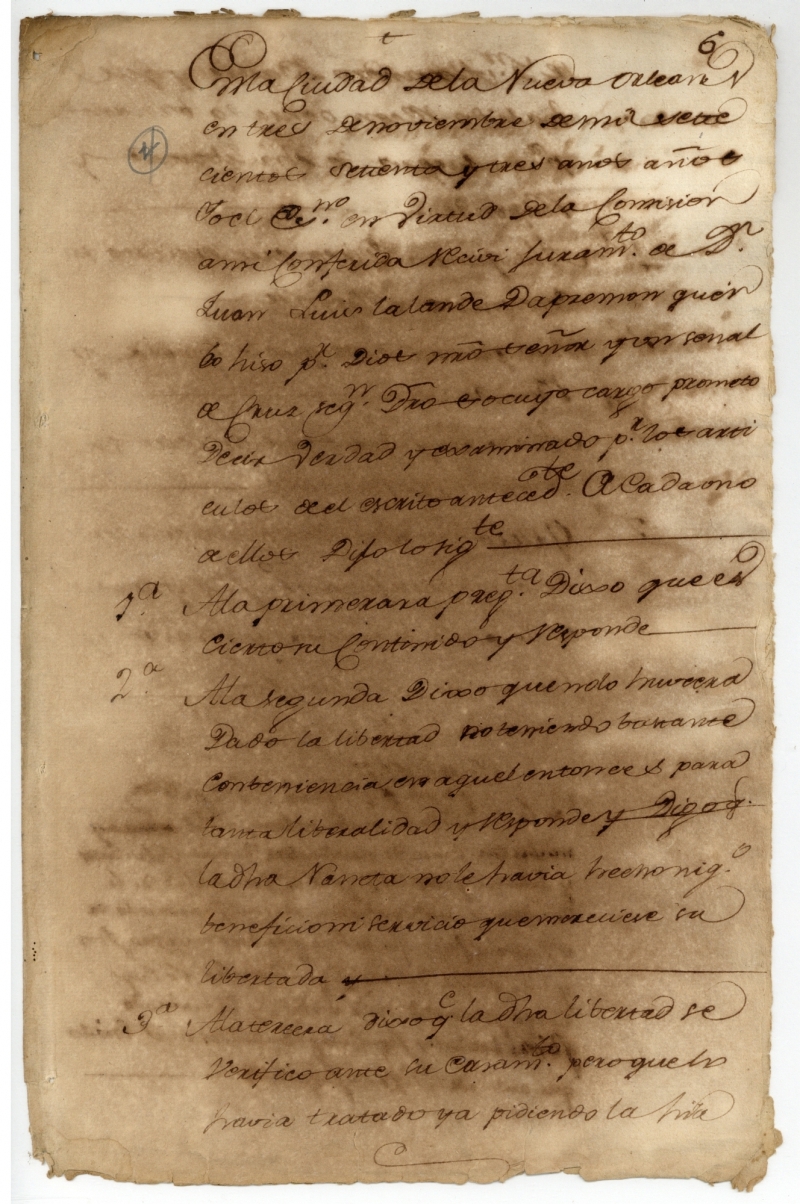 6
En la Ciudad de la Nueva Orleans
en tres de noviembre de mil sete
cientos setenta y tres anos años
Yo el Esno. en Virtud de la Comision
ami Conferida Recivi Juramto. de Dn.
Juan Luis Lalande Dapremon quien
lo hiso pr. Dios nro señor y un senal
de Cruz segn. Dro so cuyo cargo prometo
Decir Verdad y examinado pr. los arti
culos del escrito antecedte. A Cada uno
de ellos Dijo lo sigte
1a. A la primerara pregta. Dixo que es
Cierto su Contenido y Responde
2a A la segunda Dixo que no lo huviera
Dado la libertad no teniendo bastante
Conbeniencia en aquel entonces para
tanta liberalidad y Responde y Digo q.
la dha Naneta no le havia hecho nigo.
beneficio ni servicio que mereciese su
libertada
3a A la tercera dixo q la dha libertad se
Verifico ante su Casamto. pero que lo
havia tratado ya pidiendo la hija